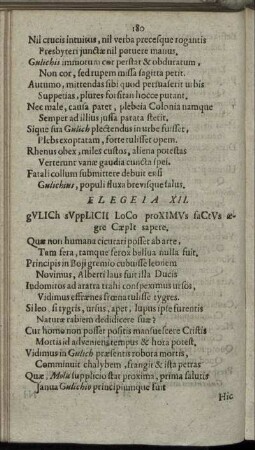 180
Nil crucis intuitus, nil verba precesque rogantis
Presbyteri junctæ nil potuere manus,
Gulichii immotum cor perstat & obduratum,
Non cor, sed rupem missa sagitta petit.
Autumo, mittendas sibi quod persuaserit urbis
Suppetias, plures forsitan hocce putant,
Nec male, causa patet, plebeia Colonia namque
Semper ad illius jussa parata stetit.
Sique sua Gulich plectendus in urbe fuisset,
Plebs exoptatam, forte tulisset opem.
Rhenus obex, miles custos, aliena potestas
Verterunt vanæ gaudia cuncta spei.
Fatali collum submittere debuit ensi
Gulichius, populi fluxa brevisque salus,
ELEGEIA XII.
gVLICh sVppLICII LoCo proXIMVs faCtVs æ-
gre CœpIt sapere.
Quæ non humana cicurari posset ab arte,
Tam fera, tamque ferox bellua nulla fuit.
Principis in Bojj gremio cubuisse leonem
Novimus, Alberti laus fuit illa Ducis
Indomitos ad aratra trahi conspeximus ursos,
Vidimus effrænes fræna tulisse tygres.
Si leo, si tygris, ursus, aper, lupus ipse furentis
Naturæ rabiem dedidicere suæ?
Cur homo non posset positis mansuescere Cristis
Mortis id adveniens tempus & hora potest.
Vidimus in Gulich præsentis robora mortis,
Comminuit chalybem, frangit & ista petras
Quæ, Mola supplicio stat proxima, prima salutis
Janua Gulichio principiumque fuit
Hic